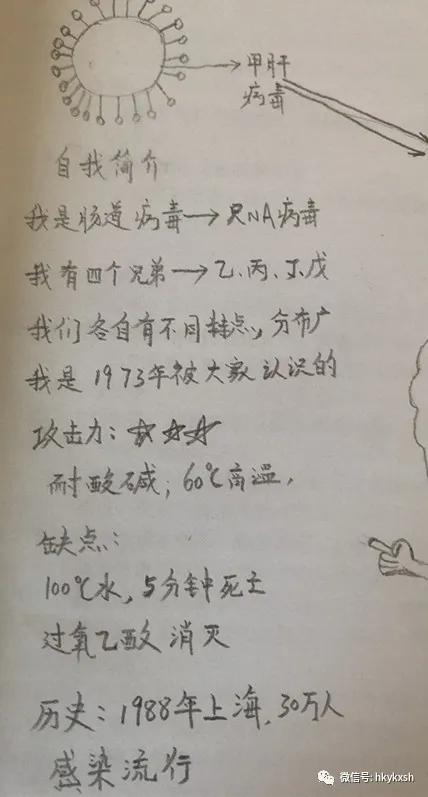 甲肝
病毒
自我简介
我是肠道病毒→RNA病毒
我有四个兄弟→乙、丙、丁、戊
我们各自有不同特点，分布广
我是1973年被大家认识的
攻击力：☆☆☆
耐酸碱；60℃高温，
缺点：
100℃水，5分钟死亡
过氧乙酸消灭
历史：1988年上海，30万人
感染流行
微信号: hkykxsh